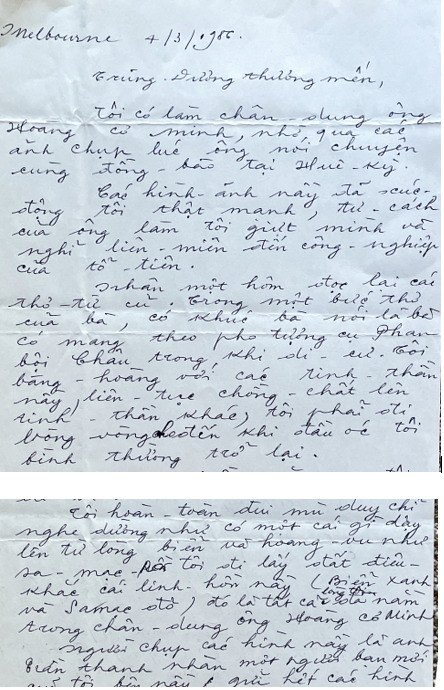 Melbourne 4/3/1986.
Trùng-Dương thương mến,
Tôi có làm chân-dung ông
Hoàng cơ minh, nhờ qua các
ảnh chụp lúc ông nói chuyện
cùng đồng-bào tại Huê-kỳ.
Các hình-ảnh này đã xúc-
động tôi thật mạnh, tư-cách
của ông làm tôi giựt mình và
nghĩ liên-miên đến công-nghiệp
của tổ-tiên.
Nhân một hôm đọc lại các
thơ-từ cũ. Trong một bức thơ
của bà, có khúc bà nói là bà
có mang theo pho tượng cụ Phan
bội Châu trong khi di-cư. Tôi
bàng-hoàng với các tinh-thần
này, liên-tục chồng-chất lên
tinh-thần khác, tôi phải đi
vòng vòng đến khi đầu óc tôi
bình thường trở lại.
Tôi hoàn-toàn đui mù duy chỉ
nghe dường như có một cái gì dậy
lên từ lòng biển và hoang vu như
sa-mạc. Rồi tôi đi lấy đất điêu-
khắc cái linh-hồn này (Biển xanh
và Samac đó) đó là tất cả nằm
trong chân-dung ông Hoàng cơ Minh
Người chụp các hình này là anh
Trần thanh nhân một người bạn mới
tôi này, giữ hết các hình